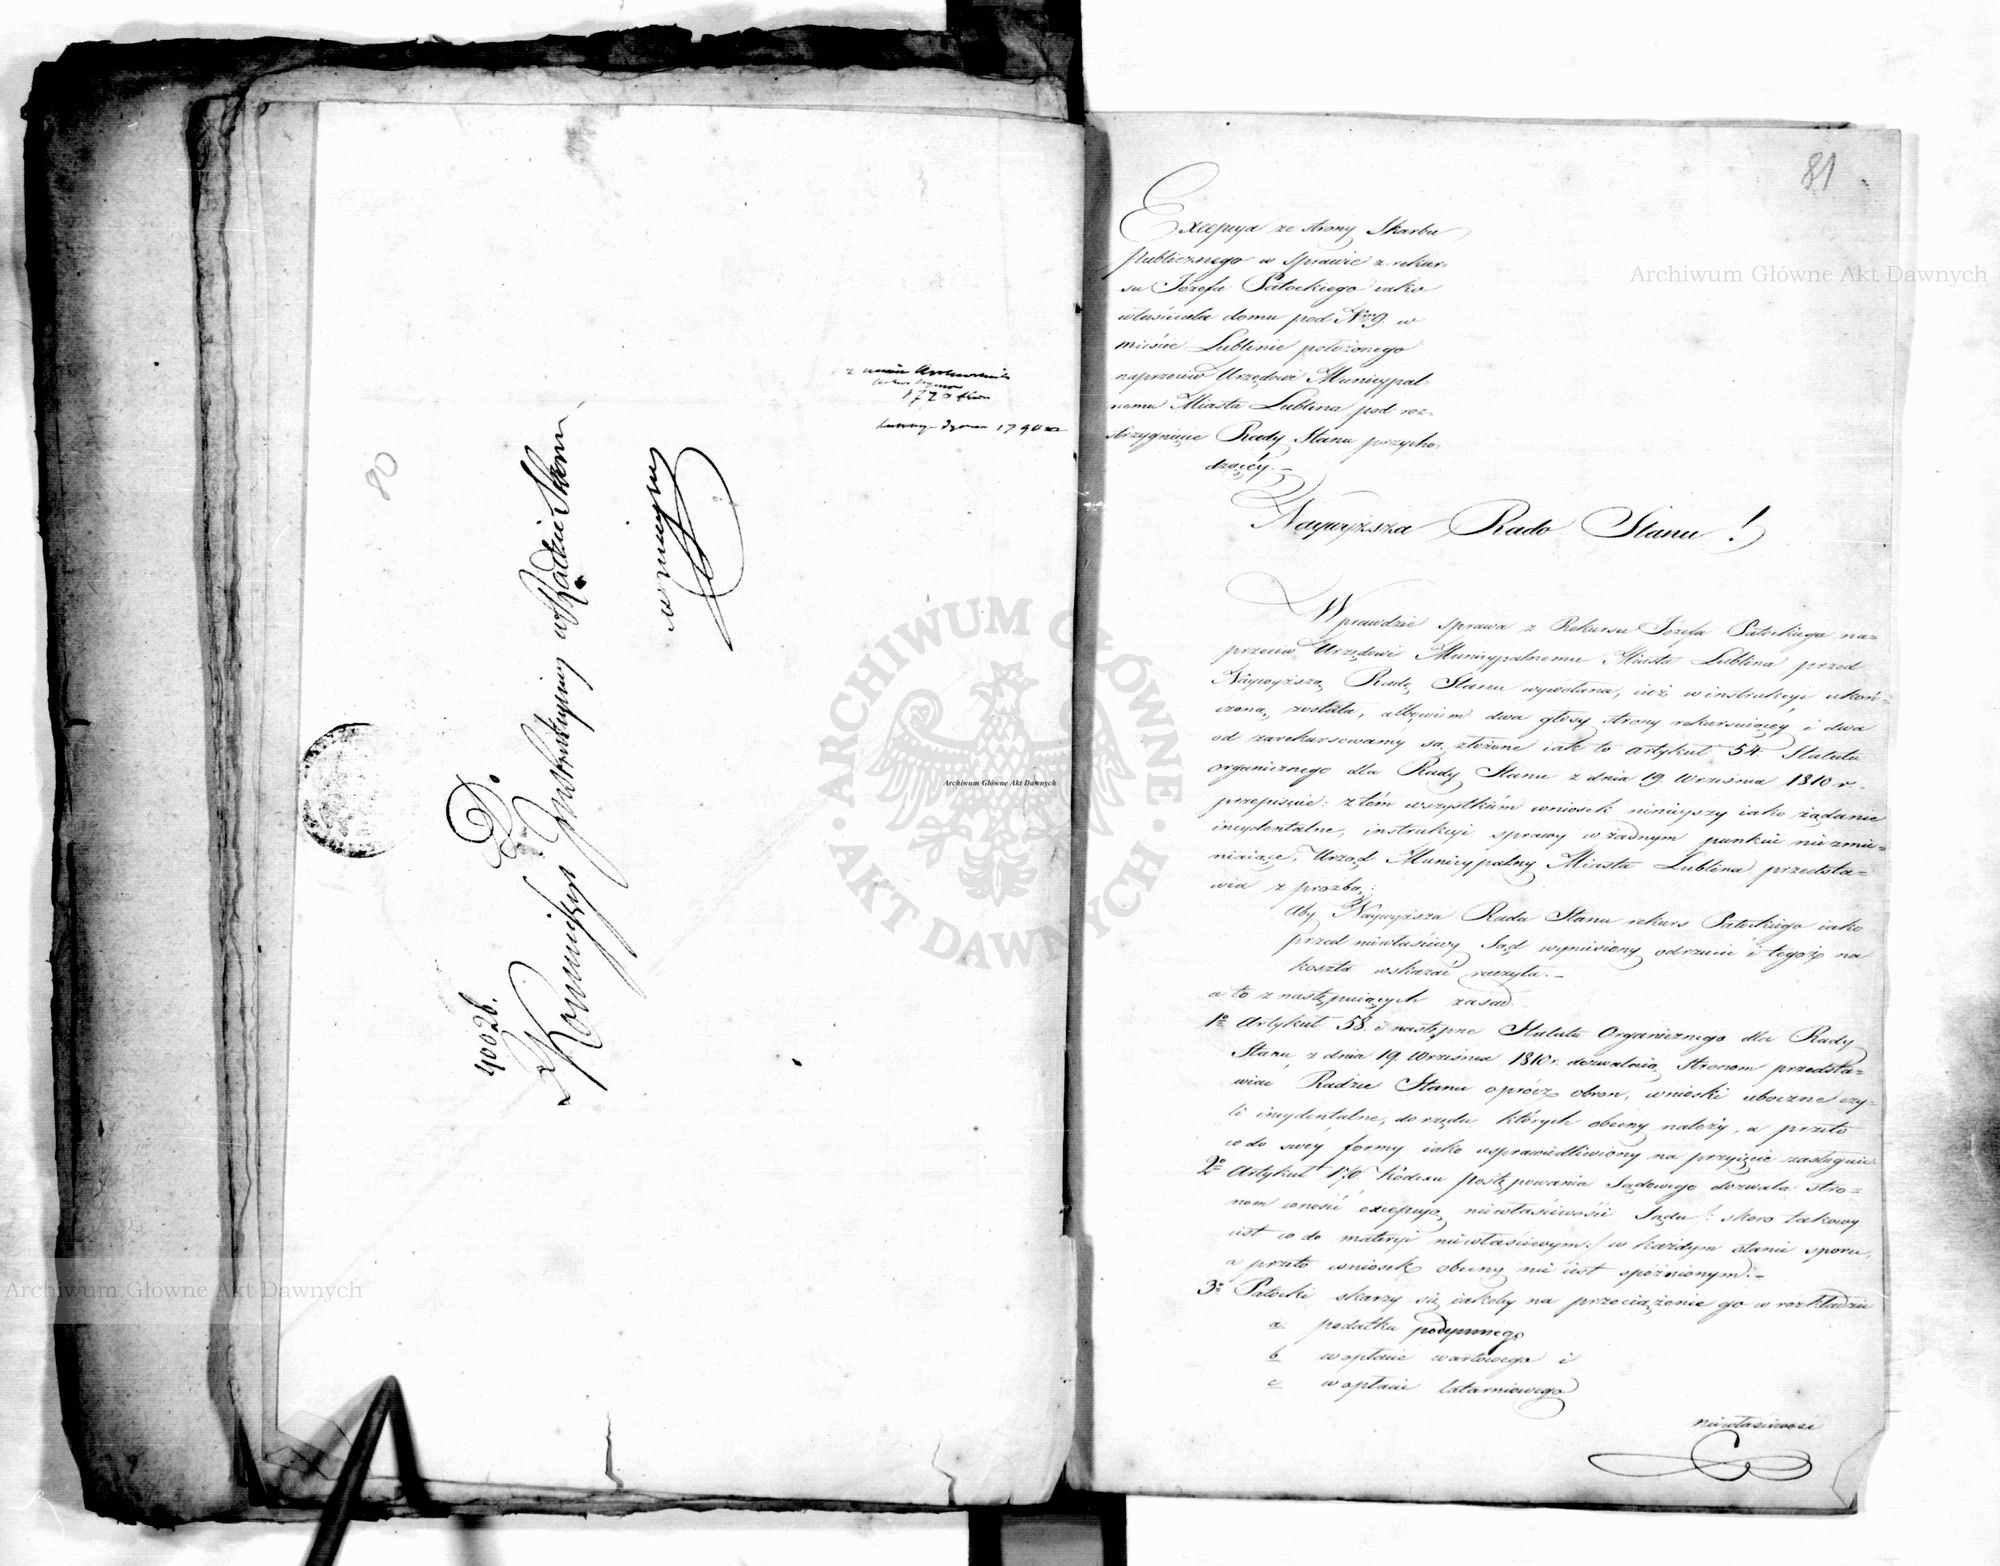 80
40026.
D.
Kommissyi Instrukcyiney w Radzie Stanu
w mieyscu
1790
81
Excepcya ze strony Skarbu
Publicznego w sprawie z rekur=
su Józefa Patockiego iako
właściciela domu pod Nrm 9. w
mieście Lublinie położonego
naprzeciw Urzędowi Municypal=
nemu Miasta Lublina pod roz=
strzygnięcie Rady Stanu przycho=
dzącéy.
Naywyższa Rado Stanu!
Wprawdzie sprawa z Rekursu Józefa Patockiego na=
przeciw Urzędowi Municypalnemu Miasta Lublina przed
Naywyższą Radę Stanu wywołana, iuż w instrukcyi ukoń=
czoną została, albowiem dwa głosy strony rekursuiącey i dwa
od zarekursowaney są złożone iak to artykuł 54. Statutu
organicznego dla Rady Stanu z dnia 19 Września 1810 r.
przepisuie: z tém wszystkiem wniosek ninieyszy iako żądanie
incydentalne, instrukcyi sprawy w żadnym punkcie niezmie=
niaiące, Urząd Municypalny Miasta Lublina przedsta=
wia z prozbą:
Aby Naywyższa Rada Stanu rekurs Patockiego iako
przed niewłaściwy Sąd wyniesiony odrzucić i tegoż na
koszta wskazać raczyła.
a to z następuiących zasad.
1º Artykuł 58. i następne Statutu Organicznego dla Rady
Stanu z dnia 19. Września 1810 r. dozwalaią Stronom przedsta=
wiać Radzie Stanu oprócz obron, wnioski uboczne czy=
li incydentalne, do rzędu których obecny należy, a przeto
co do swey formy iako usprawiedliwiony na przyięcie zasługuie.
2º Artykuł 170. Kodexu Postępowania Sądowego dozwala stro=
nom wnosić excepcyą niewłaściwości Sądu /: skoro takowy
iest co do materyi niewłaściwym :/ w każdym stanie sporu,
a przeto wniosek obecny nie iest spóźnionym.
3º Patocki skarzy się iakoby na przeciążenie go w rozkładzie
a podatku podymnego
b w opłacie wartowego i
c w opłacie latarniowego
niewłaściwość
Archiwum Główne Akt Dawnych
Archiwum Główne Akt Dawnych
Archiwum Główne Akt Dawnych
ARCHIWUM GŁÓWNE · AKT DAWNYCH ·